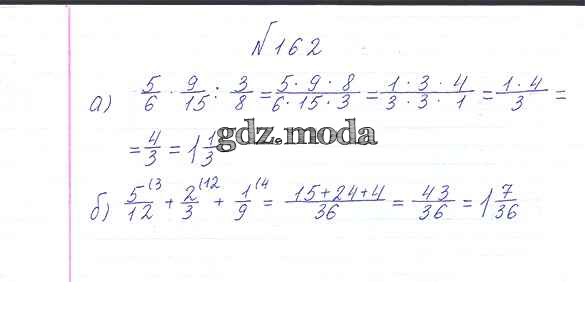 №162
а) 5/6 · 9/15 : 3/8 = 5·9·8/6·15·3 = 1·3·4/3·3·1 = 1·4/3 =
= 4/3 = 1 1/3
gdz.moda
б) 5/12 (3 + 2/3 (12 + 1/9 (4 = 15+24+4/36 = 43/36 = 1 7/36